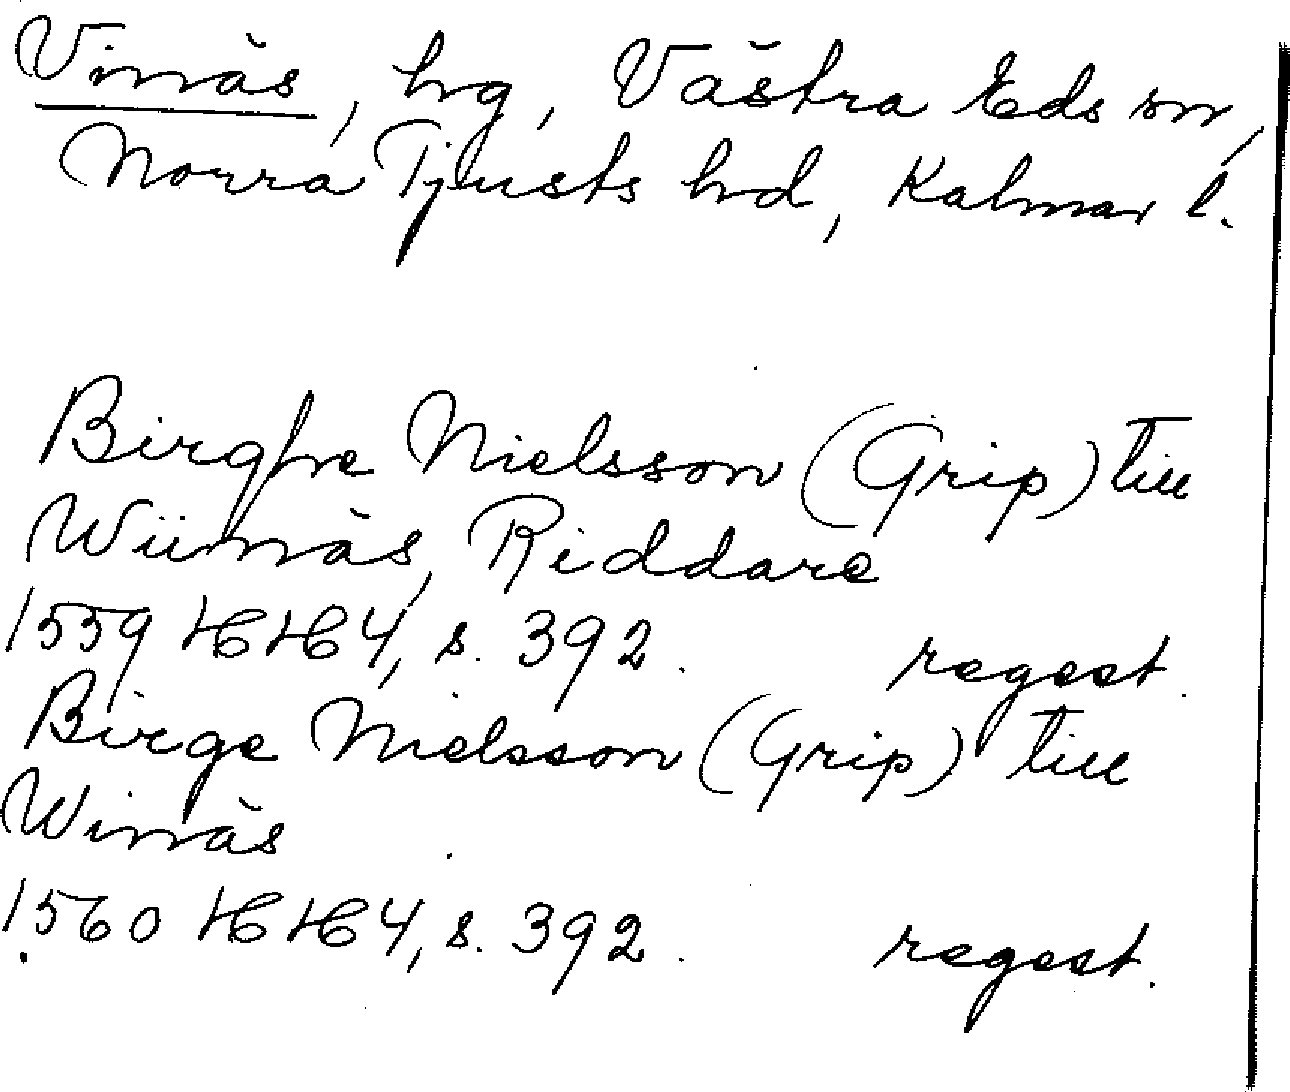 Vinäs, hg, Västra Eds sn,
Norra Tjusts hd, Kalmar l.
Birghe Nielsson (Grip) till
Wiinäs, Riddare
1559 HH 4, s. 392. regest.
Birge Nielsson (Grip) till
Winäs
1560 HH 4, s. 392. regest.